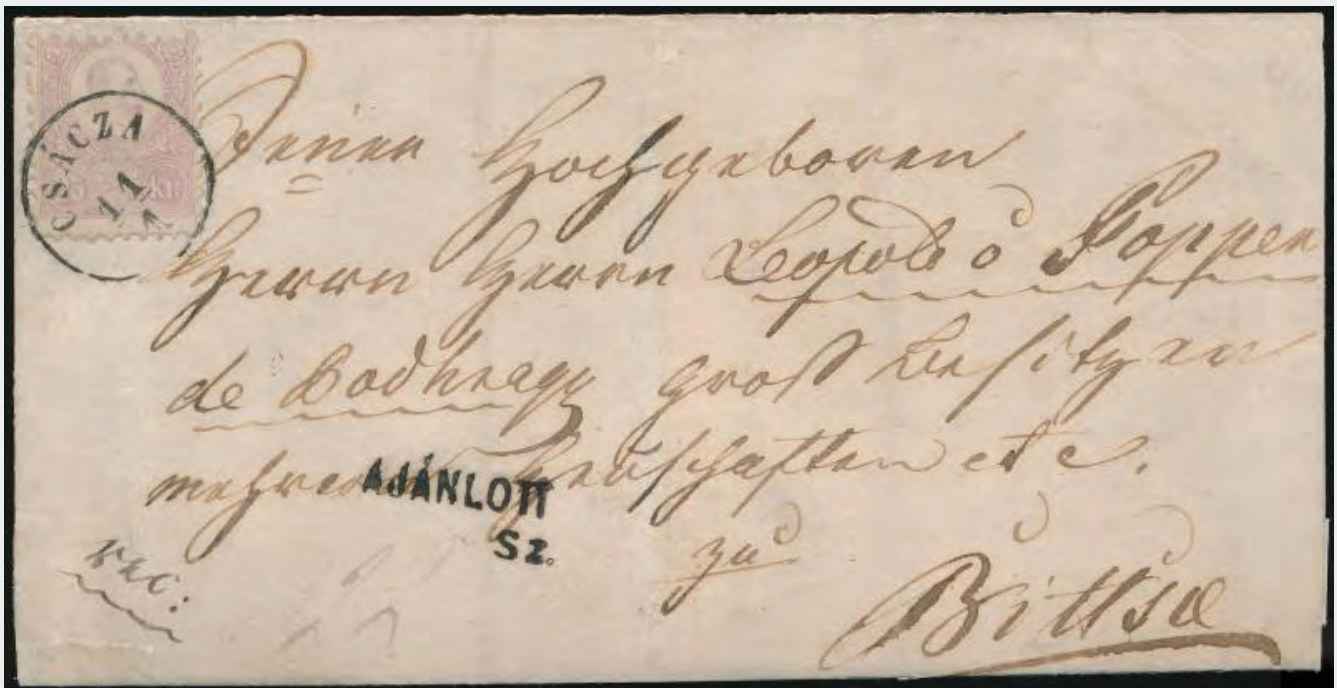 CSÁCZA
11
1
Seiner Hochgeboren
Herrn Herrn Leopold v Popper
de Podhragy Groß Besitzer
mehrerer Herrschaften etc.
AJÁNLOTT
Sz.
zu
rec:
Bittse